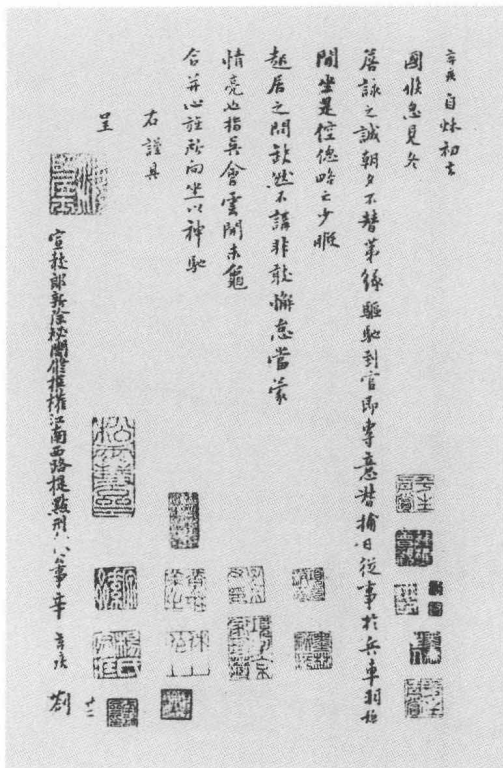 弃疾自秋初去
國倏忽見冬
詹詠之誠朝夕不替第緣驅馳到官即專意督捕日從事於兵車羽檄
間坐是倥傯略亡少暇
起居之問缺然不講非敢懈怠當蒙
情亮也指吳會雲間未龜
合并心旌所向坐以神馳
右謹具
呈
宣教郎新除祕閣修撰權江南西路提點刑獄公事辛弃疾劄子